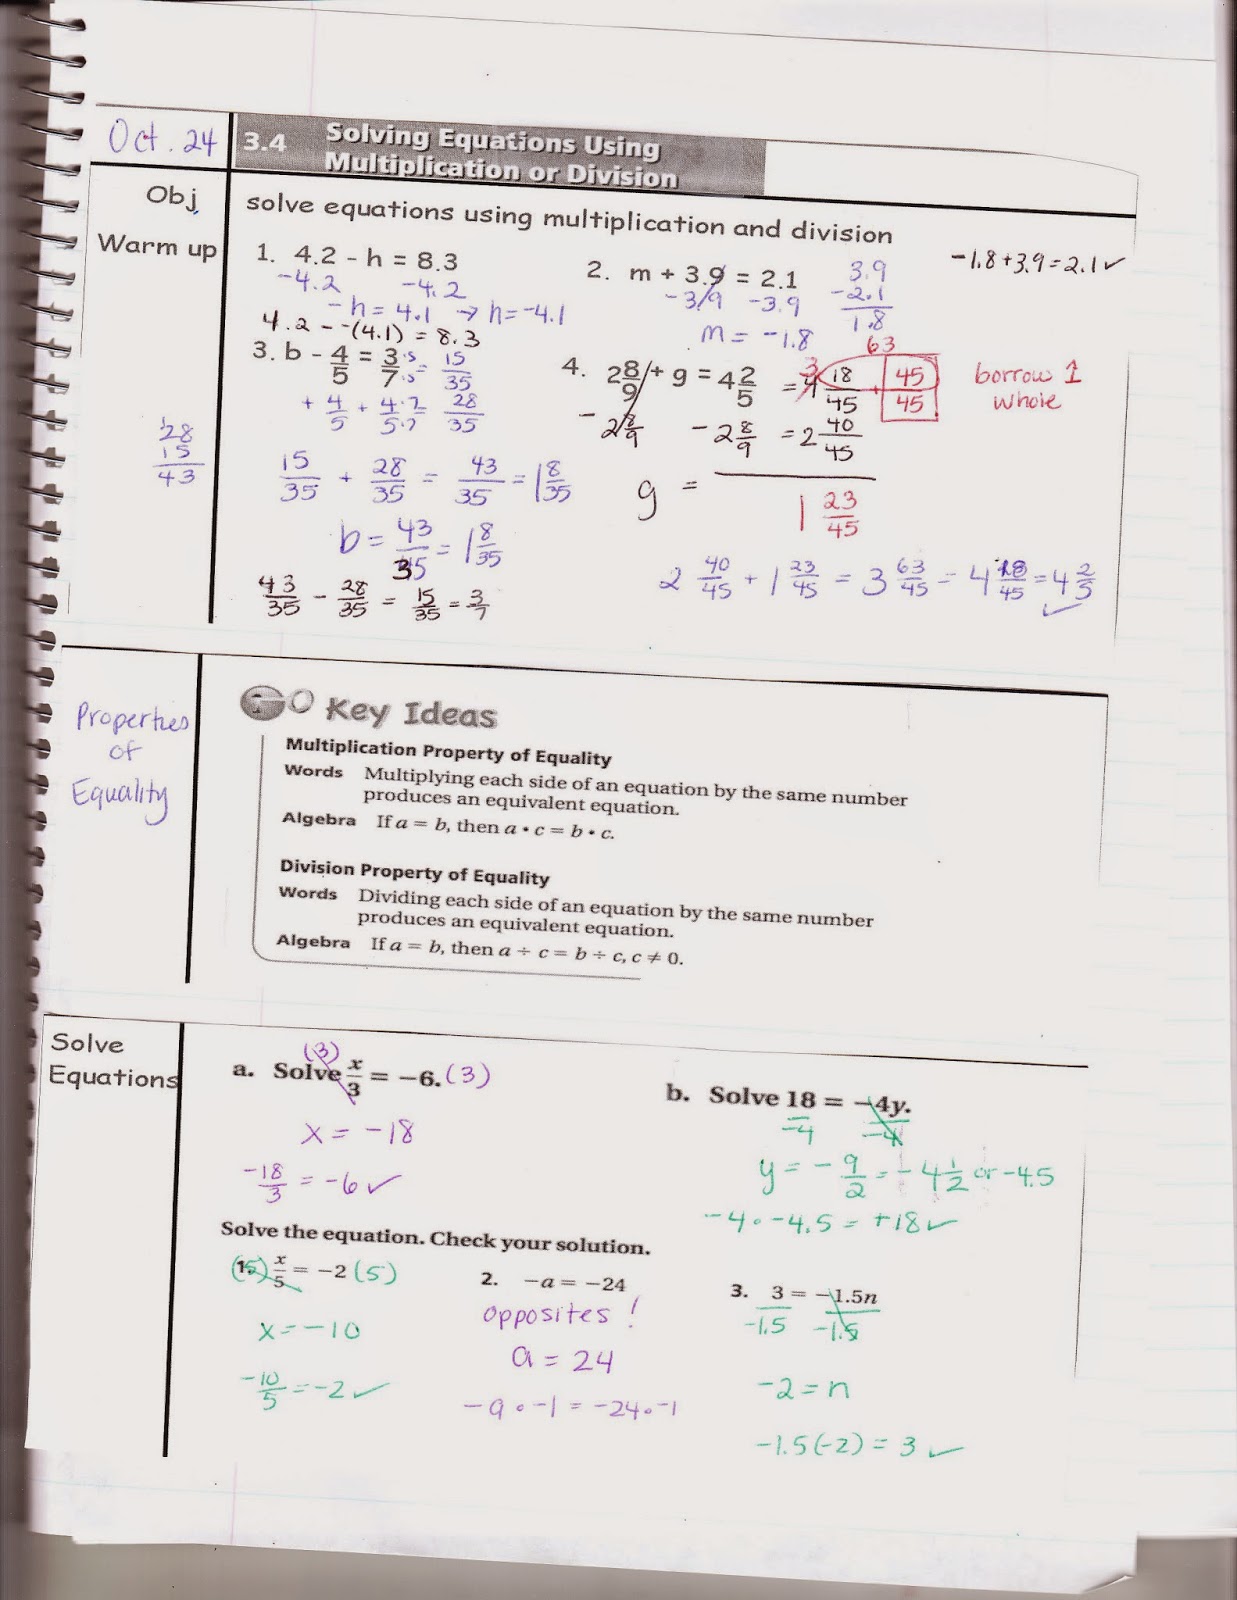 Oct. 24
3.4 Solving Equations Using
Multiplication or Division
Obj
solve equations using multiplication and division
Warm up
1. 4.2 - h = 8.3
-4.2 -4.2
-h = 4.1 → h = -4.1
4.2 - -(4.1) = 8.3
2. m + 3.9 = 2.1
-3.9 -3.9
m = -1.8
3.9
-2.1
1.8
-1.8 + 3.9 = 2.1 ✓
3. b - 4/5 = 3/7 ·5/·5 = 15/35
+ 4/5 + 4·7/5·7 28/35
15/35 + 28/35 = 43/35 = 1 8/35
b = 43/35 = 1 8/35
43/35 - 28/35 = 15/35 = 3/7
28
15
43
4. 2 8/9 + g = 4 2/5 = 3 4 18/45 + 45/45
63
borrow 1
whole
- 2 8/9 - 2 8/9 = 2 40/45
g = 1 23/45
2 40/45 + 1 23/45 = 3 63/45 = 4 18/45 = 4 2/5 ✓
Properties
of
Equality
Key Ideas
Multiplication Property of Equality
Words Multiplying each side of an equation by the same number
produces an equivalent equation.
Algebra If a = b, then a • c = b • c.
Division Property of Equality
Words Dividing each side of an equation by the same number
produces an equivalent equation.
Algebra If a = b, then a ÷ c = b ÷ c, c ≠ 0.
Solve
Equations
a. Solve (3) x/3 = -6. (3)
x = -18
-18/3 = -6 ✓
b. Solve 18 = -4y.
-4 -4
y = - 9/2 = - 4 1/2 or -4.5
-4 · -4.5 = +18 ✓
Solve the equation. Check your solution.
1. (5) x/5 = -2 (5)
x = -10
-10/5 = -2 ✓
2. -a = -24
opposites !
a = 24
-a · -1 = -24 · -1
3. 3 = -1.5n
-1.5 -1.5
-2 = n
-1.5(-2) = 3 ✓